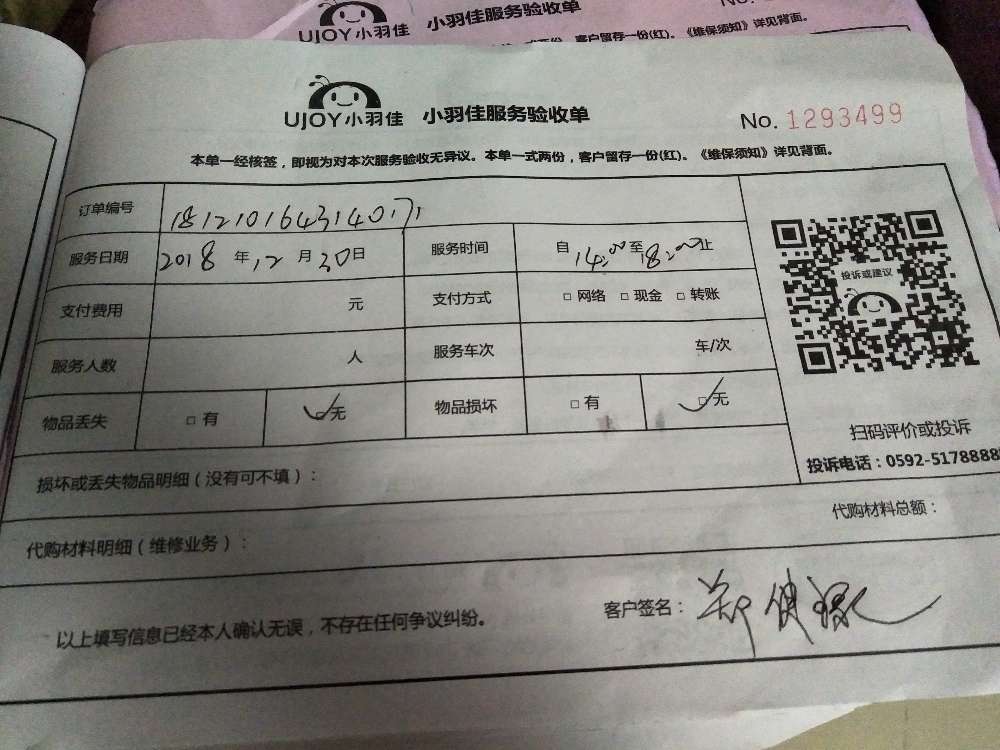 UJOY小羽佳 小羽佳服务验收单
客户留存一份(红)。《维保须知》详见背面。
UJOY小羽佳 小羽佳服务验收单 No. 1293499
本单一经核签，即视为对本次服务验收无异议。本单一式两份，客户留存一份(红)。《维保须知》详见背面。
订单编号 1812101643140171
服务日期 2018 年 12 月 30 日 服务时间 自 14:00 至 18:00 止
投诉或建议
支付费用 元 支付方式 □ 网络 □ 现金 □ 转账
服务人数 人 服务车次 车/次
物品丢失 □ 有 ☑无 物品损坏 □ 有 ☑无
扫码评价或投诉
投诉电话：0592-5178888
损坏或丢失物品明细（没有可不填）：
代购材料明细（维修业务）： 代购材料总额：
以上填写信息已经本人确认无误，不存在任何争议纠纷。 客户签名：